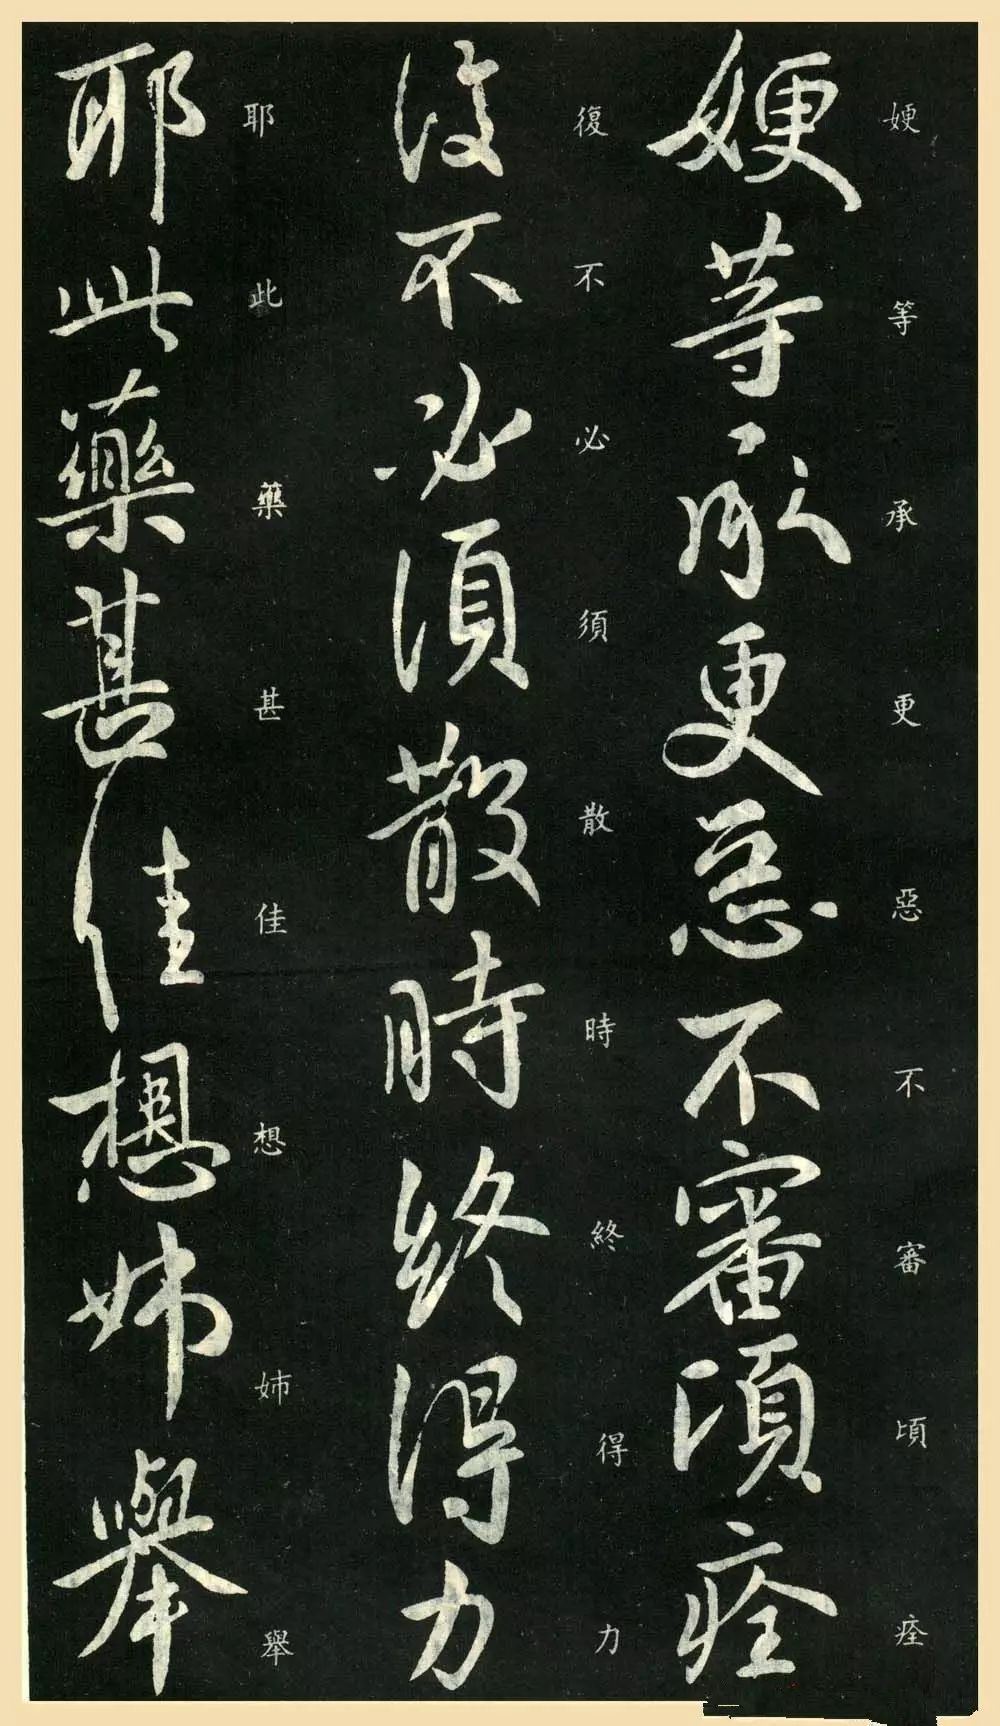 㛐等承更惡不審頃痊
㛐等承更惡不審頃痊
復不必須散時終得力
復不必須散時終得力
耶此藥甚佳想姊舉
耶此藥甚佳想姊舉